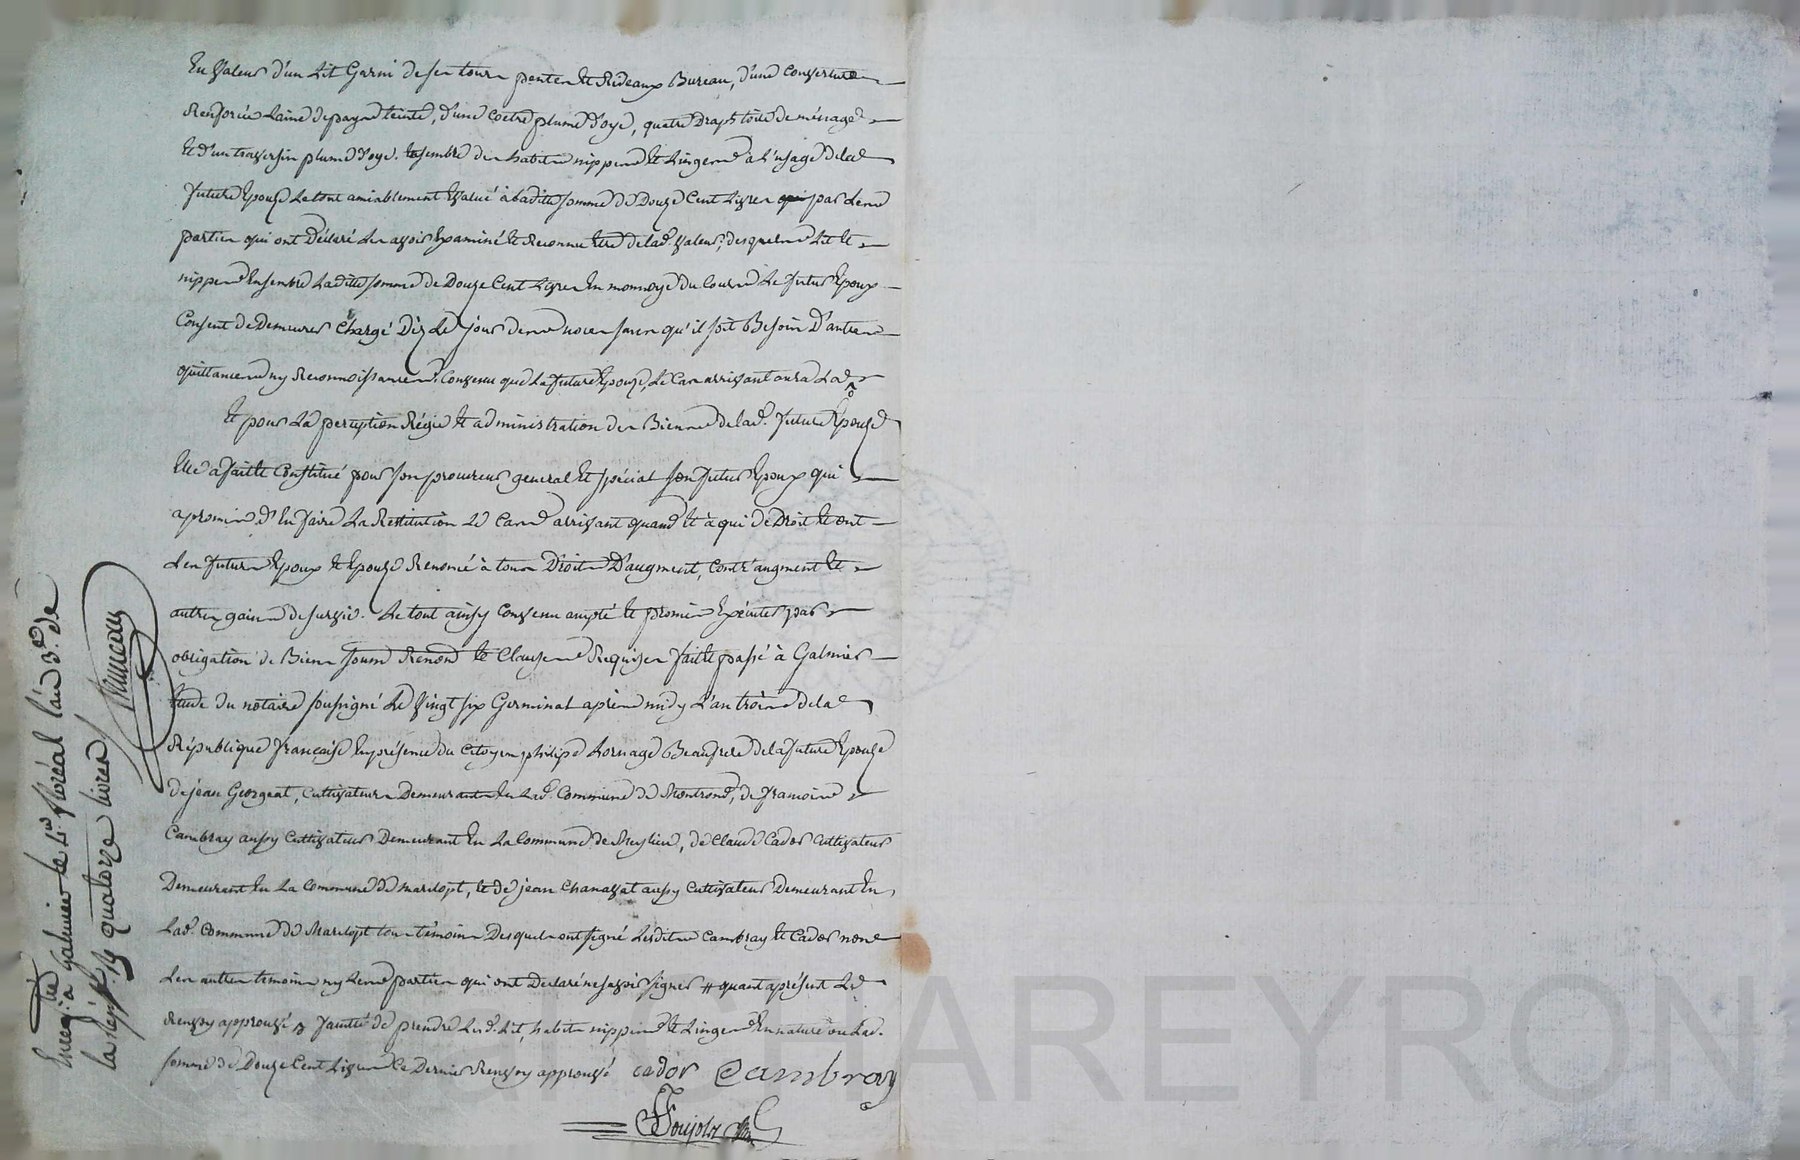 En valeur d'un Lit Garni de ses tours pentes et Rideaux Bureau, d'une couverture
Renforcée Laine de payne teinte, d'une coëtre plume d'oye, quatre Draps toile de ménage
et d'un traversin plume d'oye. Ensemble des habits nippes et Linges à l'usage de lad
future Epouze Le tout amiablement Evalué à Laditte somme de Douze Cent Livres par Les
parties qui ont Déclaré Les avoir Examiné et Reconnu Etre de lad. valeur, desquels Lit et
nippes Ensemble Laditte somme de Douze Cent Livres En monnoye du Cours Le futur Epoux
Consent de Demeurer Chargé Dez Le jour des noces sans qu'il soit Besoin D'autres
quittances ny Reconnoissances. Convenu que La future Epouze, Le Cas arrivant aura La
Et pour La perception Régie et administration des Biens de lad. future Epouze
Elle a fait et Constitué pour son procureur general et spécial son futur Epoux qui
a promis d'En faire La Restitution Le Cas arrivant quand et à qui de Droit et ont
Les futurs Epoux et Epouze Renoncé à tous Droits D'augment, Contr'augment et
autres gains de survie. Le tout ainsy Convenu accepté et promis Exécuter par
obligation de Biens soums Renons et Clauses Requizes fait et passé à Galmier
Etude du notaire soussigné Le vingt six Germinal après midy L'an troisie de la
République françaize En présence du Citoyen philipe Lornage Beaufrere de la future Epouze
de jean Georgeat, Cultivateurs Demeurants En Lad. Commune de Montrond, de francois
Cambray aussy Cultivateur Demeurant En La Commune de Meylieu, de Claude Cador Cultivateur
Demeurant En La Commune de Marclopt, et de jean Chanavat aussy Cultivateur Demeurant En
Lad. Commune de Marclopt tous témoins Desquels ont signé Lesdits Cambray et Cador non
Les autres temoins ny Les parties qui ont Declaré ne savoir signer # quant à présent Le
Renvoy approuvé faculté de prendre Lesd. Lit, habits nippes et Linges En nature ou Lad.
somme de Douze Cent Livres Ce Dernier Renvoy approuvé cador Cambray
Enregistré à galmier le 4 floréal l'an 3e. de
la Rep. quatorze livres
CHAREYRON